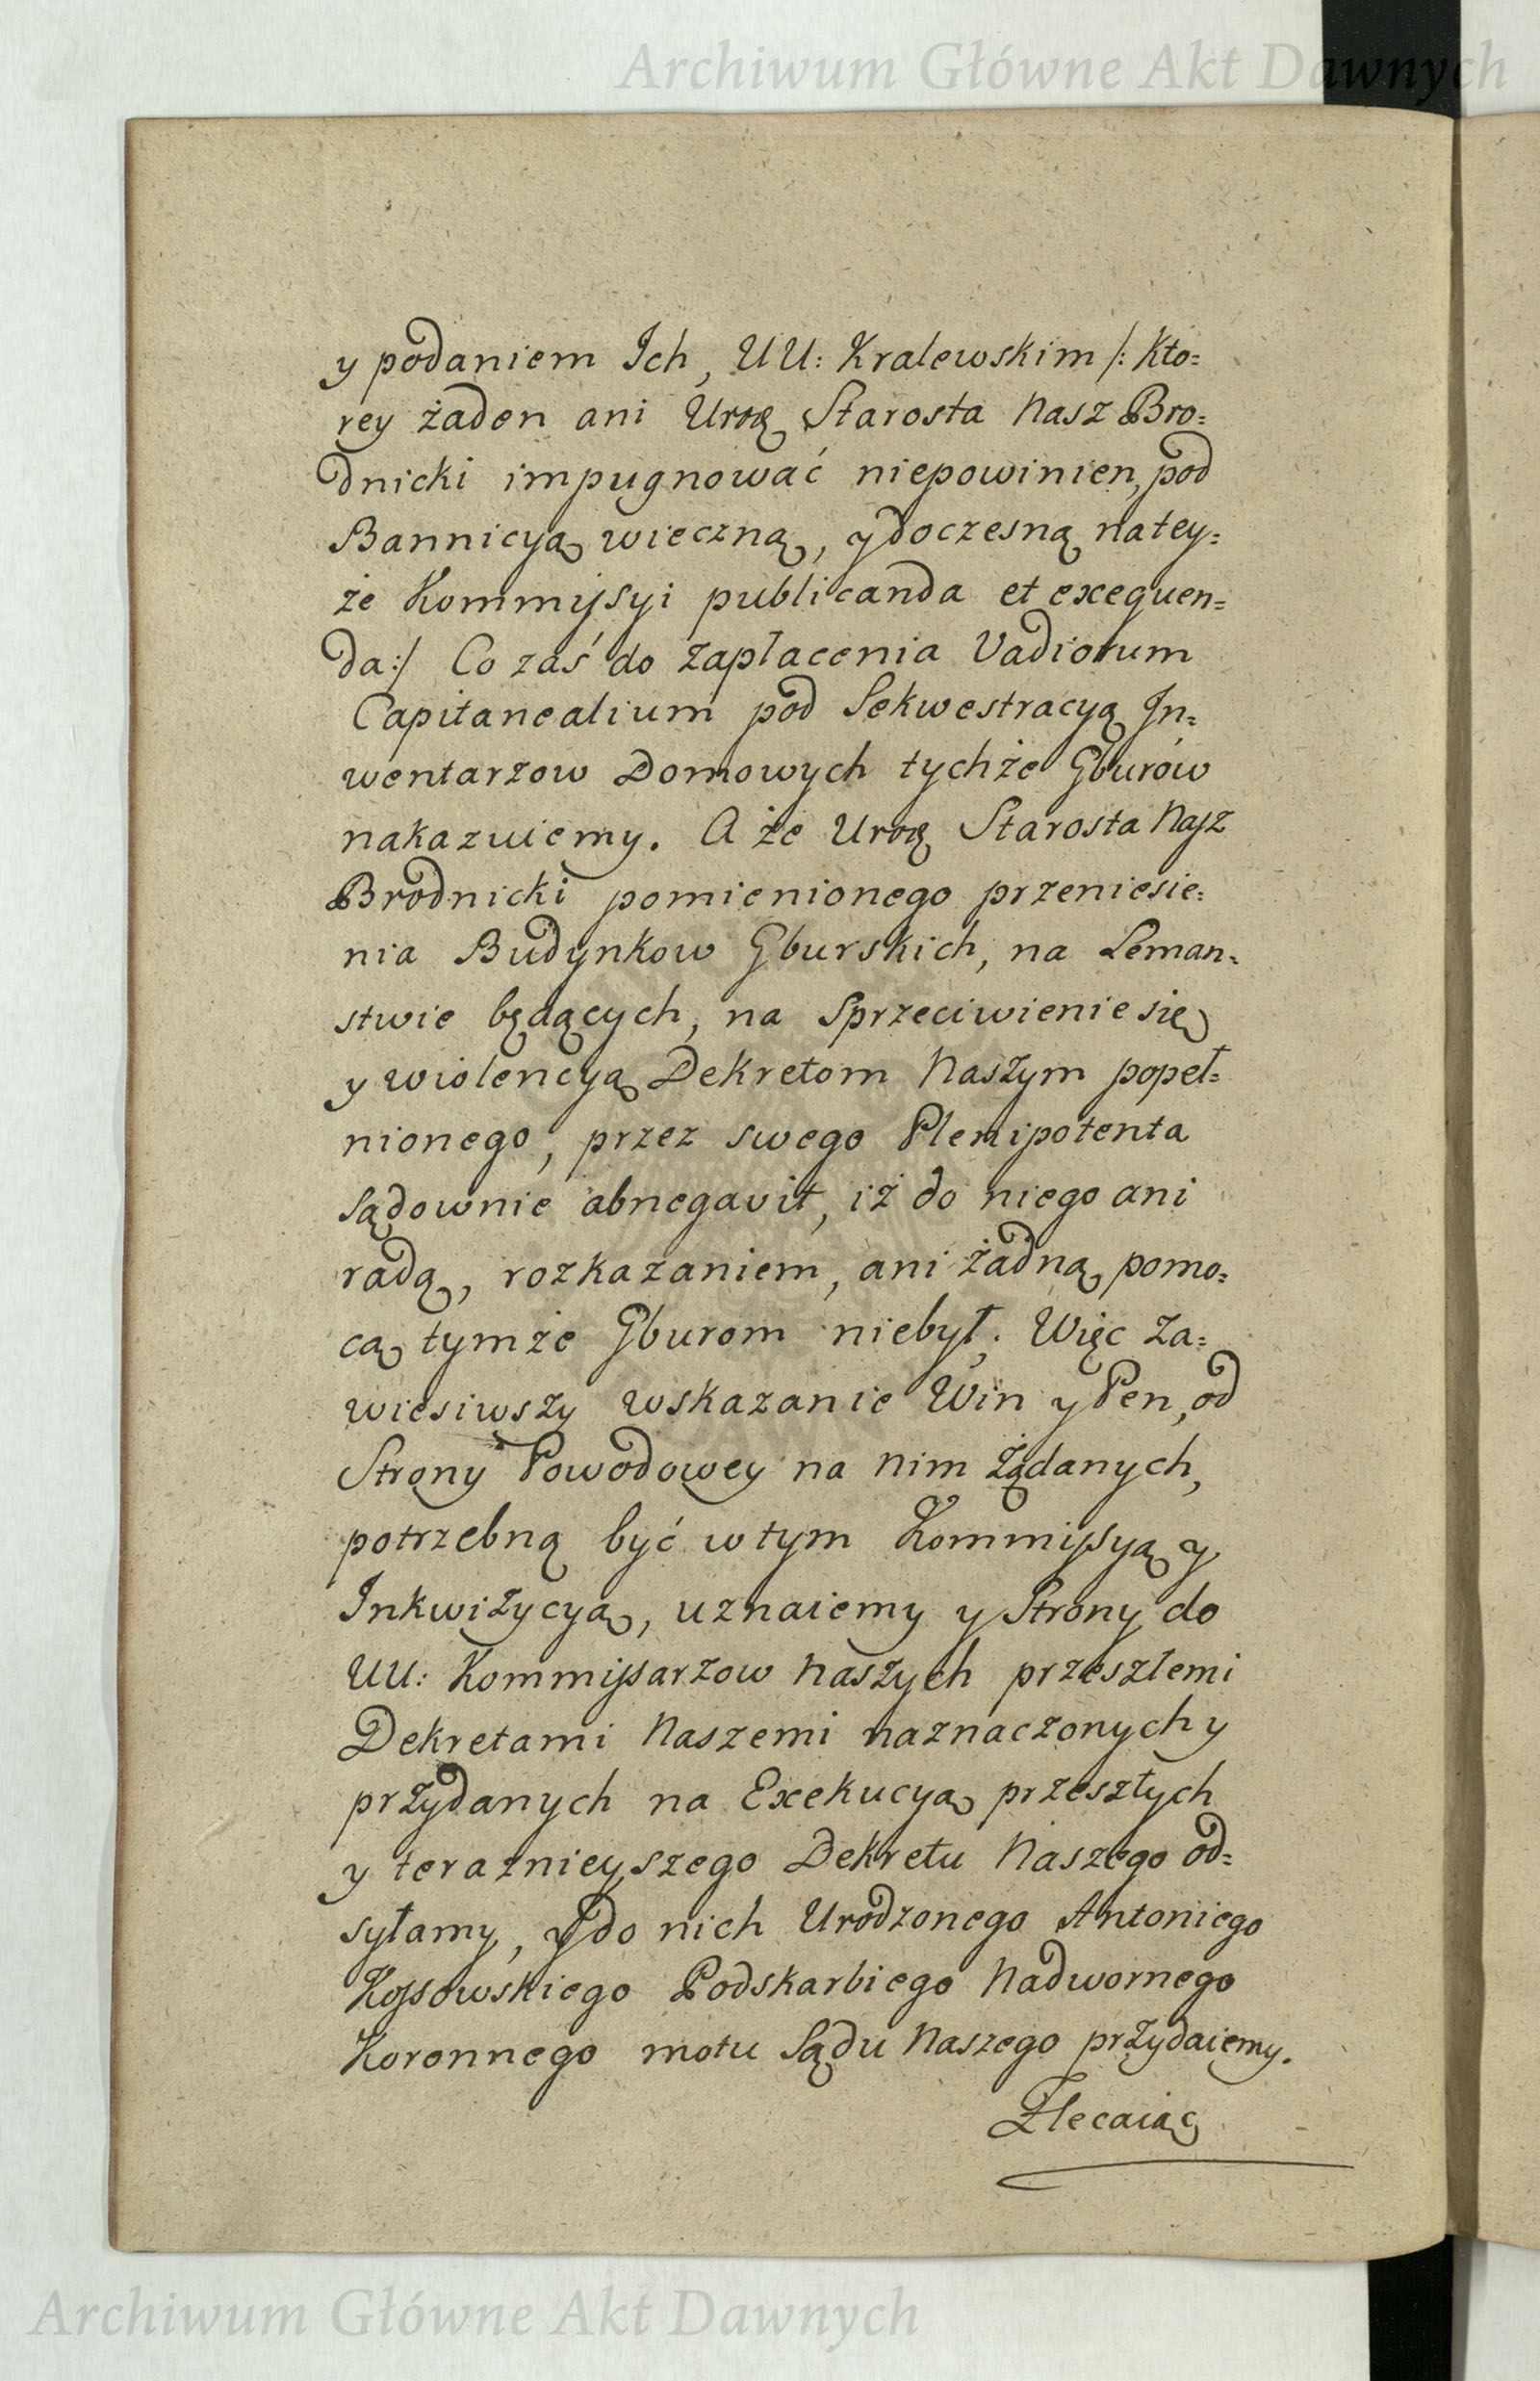 Archiwum Główne Akt Dawnych
y podaniem Ich, UU: Kralewskim /: Kto=
rey żaden ani Uroę Starosta Nasz Bro=
dnicki impugnować niepowinien, pod
Bannicyą wieczną, y doczesną natey=
że Kommissyi publicanda et exequen=
da:/ Co zaś do zapłacenia Vadiorum
Capitanealium pod Sekwestracyą In=
wentarzow Domowych tychże Gburów
nakazuiemy. A że Uroę Starosta Nasz
Brodnicki pomienionego przeniesie=
nia Budynkow Gburskich, na Leman=
stwie będących, na Sprzeciwienie się
y wiolencyą Dekretom Naszym popeł=
nionego, przez swego Plenipotenta
Sądownie abnegavit, iż do niego ani
radą, rozkazaniem, ani żadną pomo=
cą tymże Gburom niebył. Więc Za=
wiesiwszy wskazanie Win y Pen, od
Strony Powodowey na nim Żądanych,
potrzebną być w tym Kommissyą y
Inkwizycyą, uznaiemy y Strony do
UU: Kommissarzow Naszych przeszłemi
Dekretami Naszemi naznaczonych y
przydanych na Exekucyą przeszłych
y teraznieyszego Dekretu Naszego od=
syłamy, y do nich Urodzonego Antoniego
Kossowskiego Podskarbiego Nadwornego
Koronnego motu Sądu Naszego przydaiemy.
Zlecaiąc
Archiwum Główne Akt Dawnych